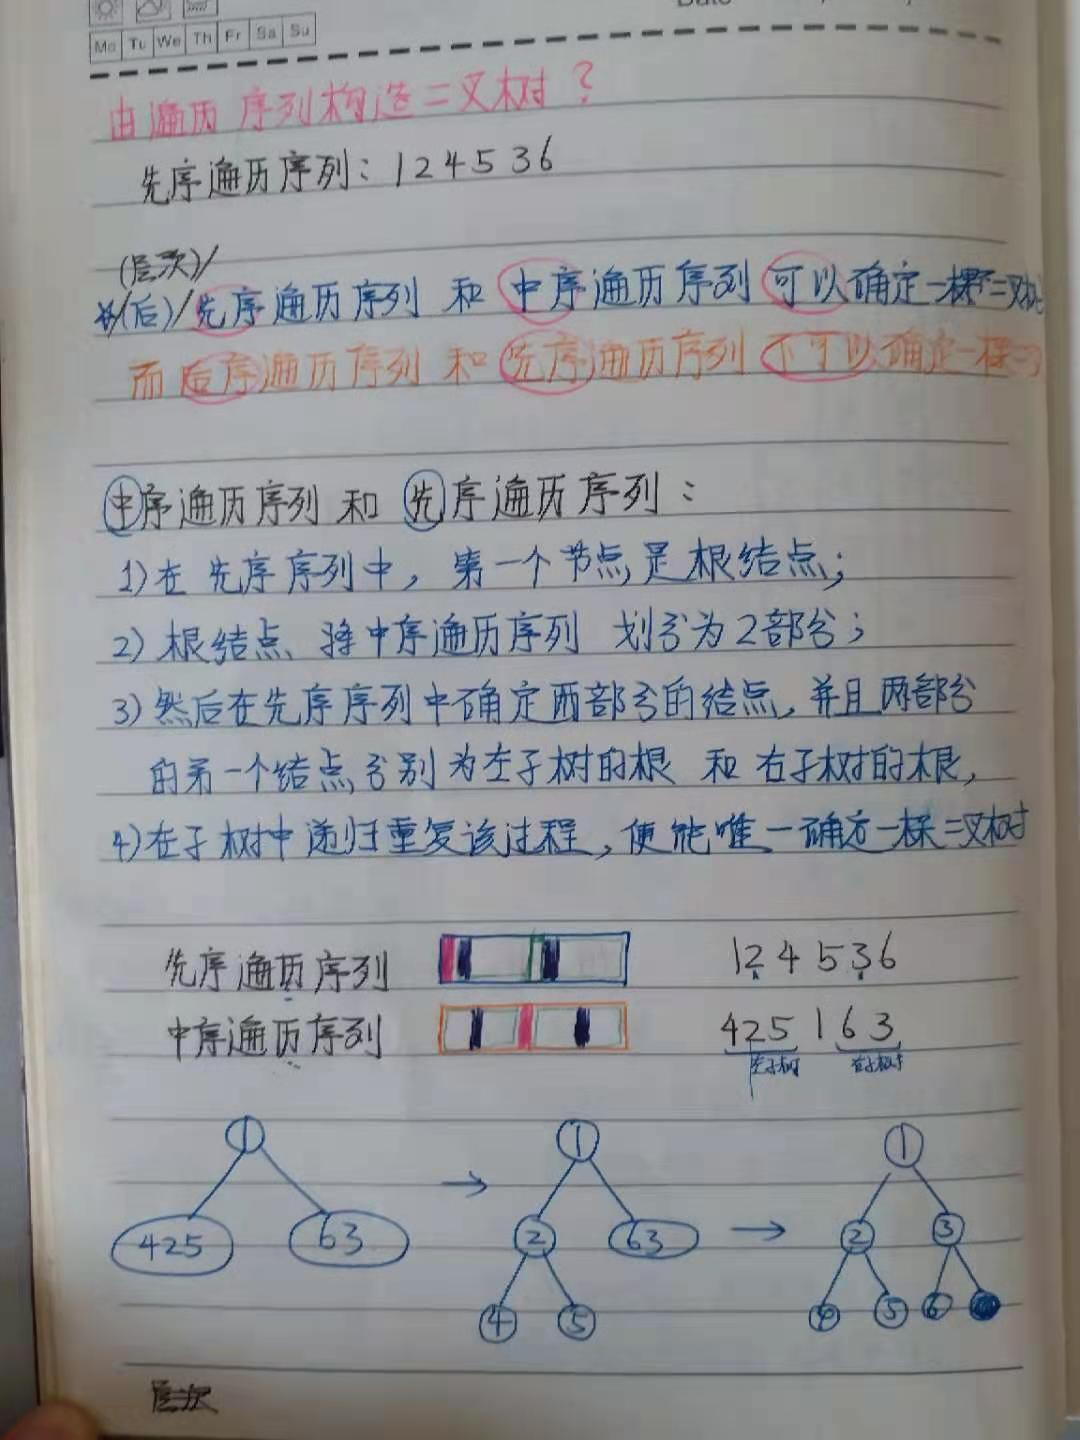 Date
Mo Tu We Th Fr Sa Su
由遍历序列构造二叉树?
先序遍历序列:124536
(层次)/
(后)/先序遍历序列 和 中序遍历序列 可以确定一棵二叉树
而后序遍历序列 和 先序遍历序列 不可以确定一棵二
中序遍历序列 和 先序遍历序列:
1)在先序序列中,第一个节点是根结点;
2)根结点 将中序遍历序列 划分为2部分;
3)然后在先序序列中确定两部分的结点,并且两部分
的第一个结点分别为左子树的根 和 右子树的根,
4)在子树中递归重复该过程,便能唯一确定一棵二叉树
先序遍历序列 124536
中序遍历序列 425 1 63
左子树 右子树
1 → 1 → 1
425 63 2 63 2 3
4 5 4 5 6
层次